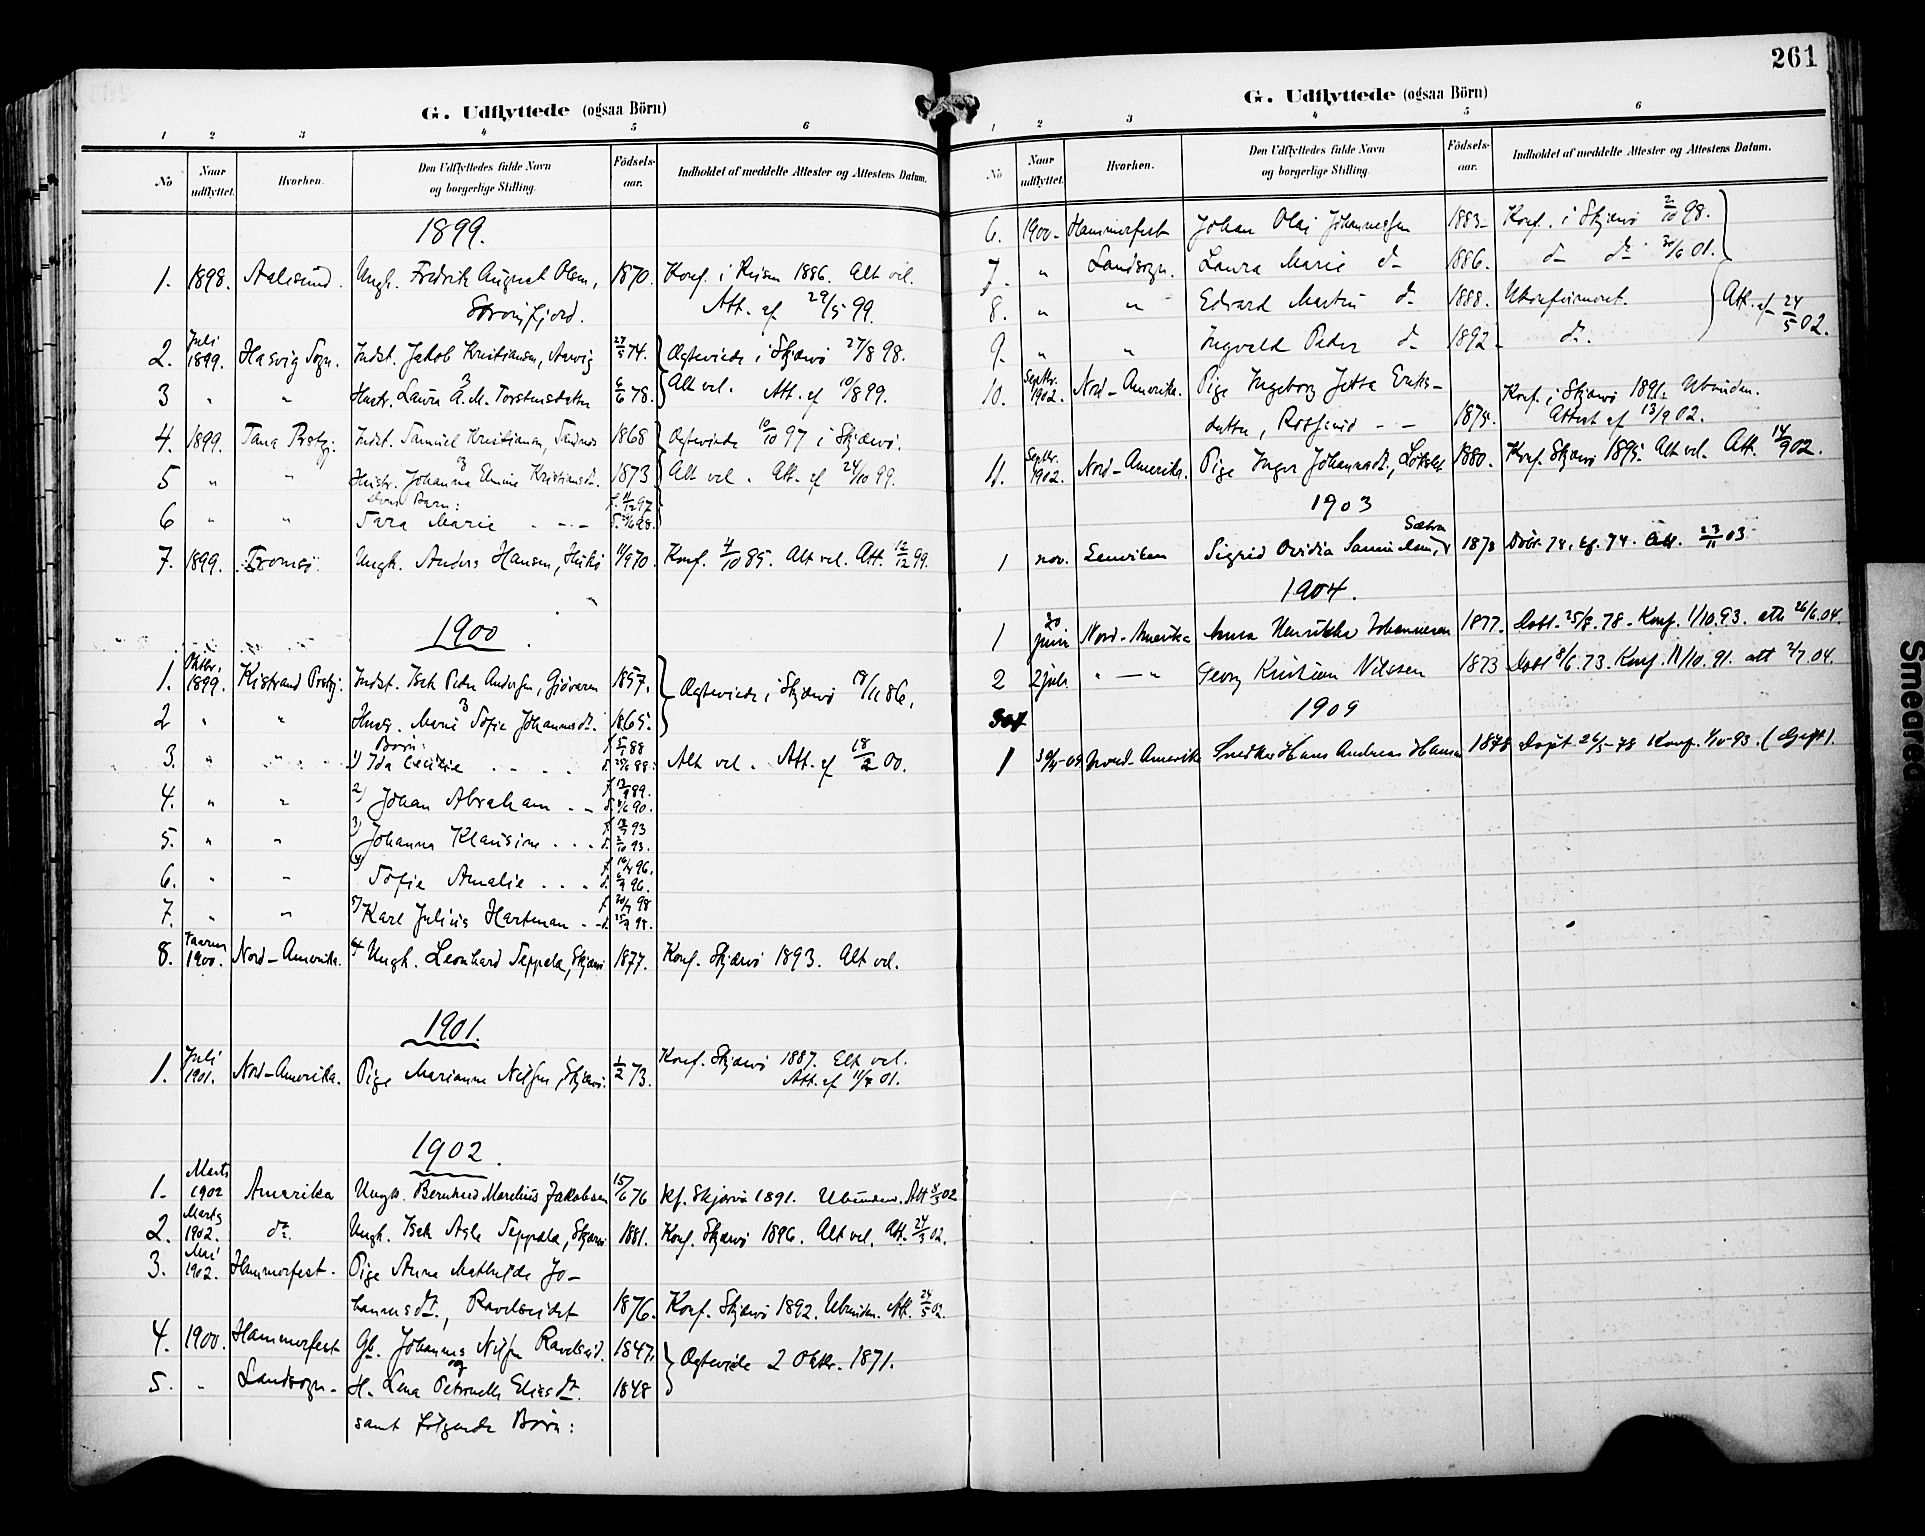 G. Udflyttede (ogsaa Börn)
1 2 3 4 5 6
No Naar udflyttet. Hvorhen. Den Udflyttedes fulde Navn og borgerlige Stilling. Födsels-aar. Indholdet af meddelte Attester og Attestens Datum.
1899.
1. 1898. Aalesund. Ungk. Fredrik August Olsen, 1870. Konf. i Reisen 1886. Alt vel.
Att. af 29/5 99.
2. Juli 1899. Hasvig Sogn. Indst. Jakob Kristiansen, 74. Ægteviede i Skjærvö 27/8 98.
3 " " Hustr. Laura A. M. Torstensdatter 6/6 78. Alt vel. Att. af 10/8 99.
4. 1899. Tana Prstgj. Indst. Samuel Kristiansen, 1868 Ægteviede 10/10 97 i Skjærvö.
5 " " Hustr. Johanna Elmine Kristiansdt. 1873 Alt vel. Att. af 24/10 99.
Deres Barn:
6 " " Sara Marie - - -
7. 1899. Tromsö. Ungk. Anders Hansen, 11/9 70. Konf. 4/10 85. Alt vel. Att. 12/12 99.
1900
1. Oktbr. 1899. Kistrand Prstgj. Indst. Isak Peder Andersen, Gjövaren 1857. Ægteviede i Skjærvö 18/11 86.
2 " " Hustr. Marie Sofie Johannesdt. 1865.
Börn:
3. " " 1) Ida Cecilie Alt vel. Att. af 18/2 00.
4. " " 2) Johan Abraham
5. " " 3) Johanna Klausine
6. " " 4) Sofie Amalie
7. " " 5) Karl Julius Hartman
8. 1900. Nord-Amerika. Ungk. Leonhard Seppala, Skjærvö 1877. Konf. Skjærvö 1893. Alt vel.
1901.
1. Juli 1901. Nord-Amerika. Pige Marianne Nilsen, Skjærvö. 1/2 73. Konf. Skjærvö 1887. Alt vel.
Att. af 11/7 01.
1902.
1. Marts 1902 Amerika Ungk. Bernhard Marelius Jakobsen 15/6 76 Kf. Skjærvö 1891. Ubunden. Att 8/3 02
2. Marts 1902. do. Ungk. Isak Asle Seppala, Skjærvö 1881. Konf. Skjærvö 1896. Alt vel. Att. 24/3 02.
3. Mai 1902. Hammerfest. Pige Anna Mathilde Jo-
hannesdt., Ravelseidet 1876. Konf. Skjærvö 1892. Ubunden. Att. 24/5 02.
4. 1900. Hammerfest Gb. Johannes Nilsen Ravelseid. 1847. Ægteviede 2 Oktbr. 1871.
og
5. " Landsogn. H. Lena Petronelle Eliasdt. 1848
samt følgende Børn:
261
G. Udflyttede (ogsaa Börn)
1 2 3 4 5 6
No Naar udflyttet. Hvorhen. Den Udflyttedes fulde Navn og borgerlige Stilling. Födsels-aar. Indholdet af meddelte Attester og Attestens Datum.
6. 1900. Hammerfest Johan Olai Johannessen 1883. Konf. i Skjærvö 2/10 98.
7. " Landsogn. Laura Marie do 1886. do do 30/6 01.
8. " " Edvard Martin do 1888. Ukonfirmeret. Att. af 24/5 02.
9. " " Ingvald Peder do 1892. do.
10. Septbr. 1902. Nord-Amerika. Pige Ingeborg Jetta Eriks-
datter, 1875. Konf. i Skjærvö 1891. Ubunden.
Attest af 13/9 02.
11. Septbr. 1902. Nord-Amerika. Pige Inger Johannesdt., 1880. Konf. Skjærvö 1895. Alt vel. Att. 14/9 02.
1903
1 nov. Lenviken Sigrid Ovidia 1878 Döbt 78, kf. 94. Att. 23/11 03.
1904.
1 20 juni Nord-Amerika Anna Henrikke Johannesen 1877. Döbt. 25/8 78. Konf. 1/10 93. att. 26/6 04.
2 2 juli " — " Georg Kristian Nilssen 1873 Döbt 8/6 73. Konf. 11/10. 91. att 2/7 04.
1909
1 Nord-Amerika Snedker Hans Andreas Hansen 1878 Döpt 26/5-78 Konf. 1/10-93. (Gift).
Smeared